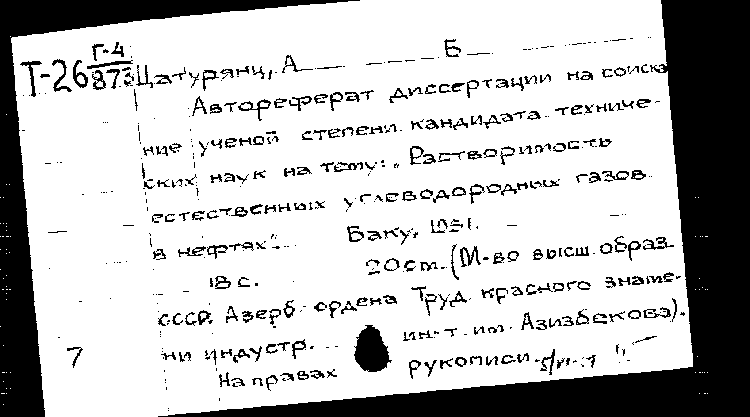 Т-26 Г-4/873 Цатурянц, А Б
Автореферат диссертации на соиска
ние ученой степени кандидата техниче-
ских наук на тему: „Растворимость
естественных углеводородных газов
в нефтях". Баку, 1951.
18 с. 20 см. (М-во высш. образ.
СССР. Азерб. ордена Труд. красного знаме-
ни индустр. ин-т. им. Азизбекова).
7 На правах рукописи